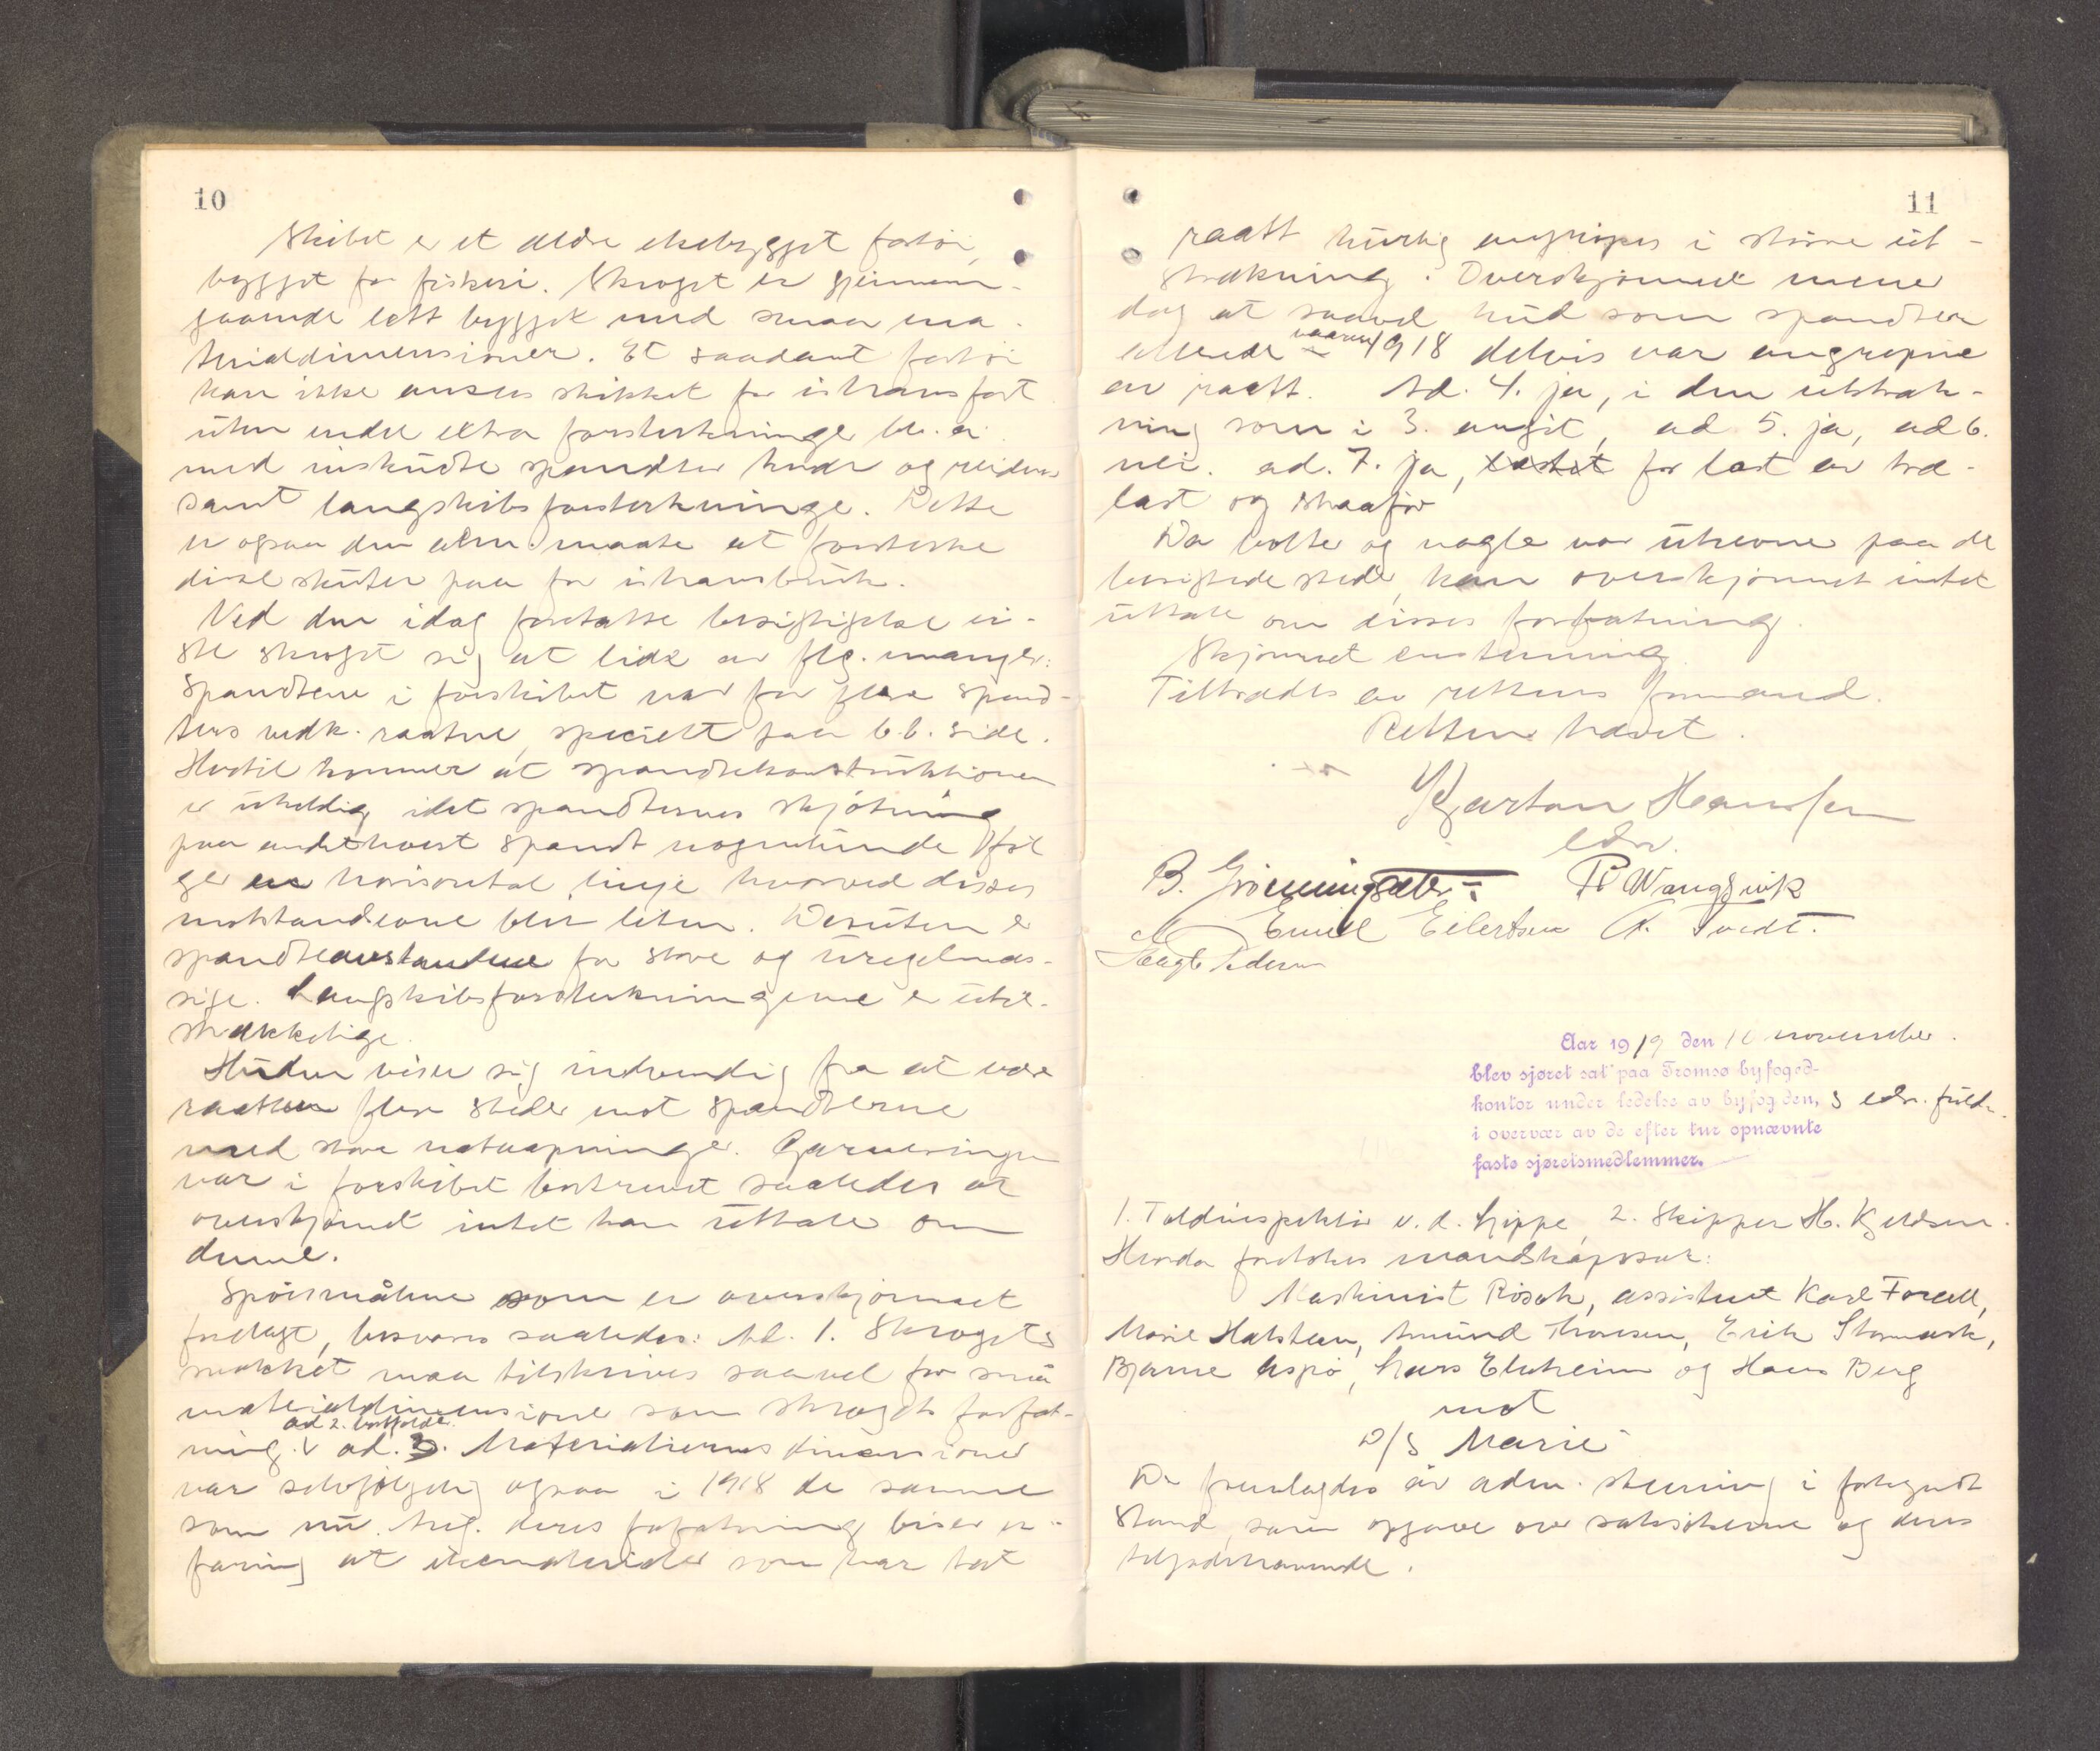 10
Skibet er et ældre ekebygget fartøi,
bygget for fiskeri. Skroget er gjennem-
gaaende lett bygget med smaa ma-
terialdimensioner. Et saadant fartøi
kan ikke anses skikket for ishavsfart
uten endel extra forsterkninger bl. a.
med inskudte spandter hude og
samt langskibsforsterkninger. Dette
er ogsaa den alm. maate at forsterke
disse skuter paa for ishavsbruk.
Ved den idag foretatte besigtigelse vi-
ste skroget sig at lide av flg. mangler:
Spandtene i forskibet var for flere spand-
ters vedk. raatne, specielt paa b.b. side.
Hertil kommer at spandtekonstruktionen
er uheldig idet spandternes skjøtning
paa andethvert spandt nogenlunde føl
ger en horisontal linje hvorved disses
motstandsevne blir liten. Desuten er
spandteavstandene for store og uregelmæs-
sige. Langskibsforsterkningerne er util-
strækkelige.
Huden viser sig indvendig fra at være
raatten flere steder mot spandterne
med store nataapninger. Garneringen
var i forskibet bortrevet saaledes at
overskjønnet intet kan uttale om
denne.
Spørsmålene som er overskjønnet
forelagt, besvares saaledes: Ad. 1. Skrogets
svækket maa tilskrives saavel for små
materialdimensioner som skrogets forfat-
ad 2. bortfalder.
ning. v ad. 3. Materialiernes dimensioner
var selvfølgelig ogsaa i 1918 de samme
som nu. Ang. deres forfatning viser er-
faring at ekematerialer som har tat
11
raatt hurtig angripes i større ut-
strækning. Overskjønnet mener
dog at saavel hud som spandter
vaaren
allerede 1918 delvis var angrepne
av raatt. Ad. 4. ja, i den utstræk-
ning som i 3. angit, ad 5. ja, ad 6.
nei. ad. 7. ja, for last av træ-
last og straafor
Da bolter og nagler var utrevne paa de
besigtigede steder, kan overskjønnet intet
uttale om disses forfatning.
Skjønnet enstemmig.
Tiltrædes av rettens formand.
Retten hævet.
Kjartan Hanssen
edsv.
B. Grønningsæter P. Wangsvik
Emil Eilertsen A. Tvedt.
Pedersen
Aar 1919 den november.
blev sjøret sat paa Tromsø byfoged-
kontor under ledelse av byfogden, s edsv. fuldm.
i overvær av de efter tur opnævnte
faste sjøretsmedlemmer.
1. Toldinspektør v. d. Lippe, 2. Skipper H. Kjeldsen.
Hvorda foretokes mandskapssak:
Maskinist Rösok, assistent Karl Forsell,
Marie Halstein, Amund Thoresen, Erik Stormark,
Bjarne Aspø, Lars Elvheim og Hans Berg
mot
D/S Marie
Der fremlagdes av adm. stevning i forkyndt
stand, samt opgave over saksøkerne og deres
tilgodehavende.